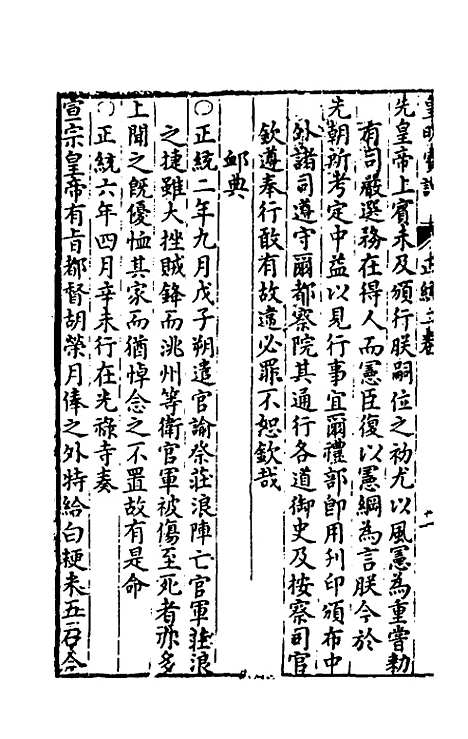 皇明寶訓
正統二卷
先皇帝上賓未及頒行朕嗣位之初尤以風憲為重嘗勑
有司嚴選務在得人而憲臣復以憲綱為言朕今於
先朝所考定中益以見行事宜爾禮部即用刊印頒布中
外諸司遵守爾都察院其通行各道御史及按察司官
欽遵奉行敢有故違必罪不恕欽哉
卹典
○正統二年九月戊子朔遣官諭祭莊浪陣亡官軍莊浪
之捷雖大挫賊鋒而洮州等衛官軍被傷至死者亦多
上聞之既優恤其家而猶悼念之不置故有是命
○正統六年四月辛未行在光祿寺奏
宣宗皇帝有旨都督胡榮月俸之外特給白粳米五石今